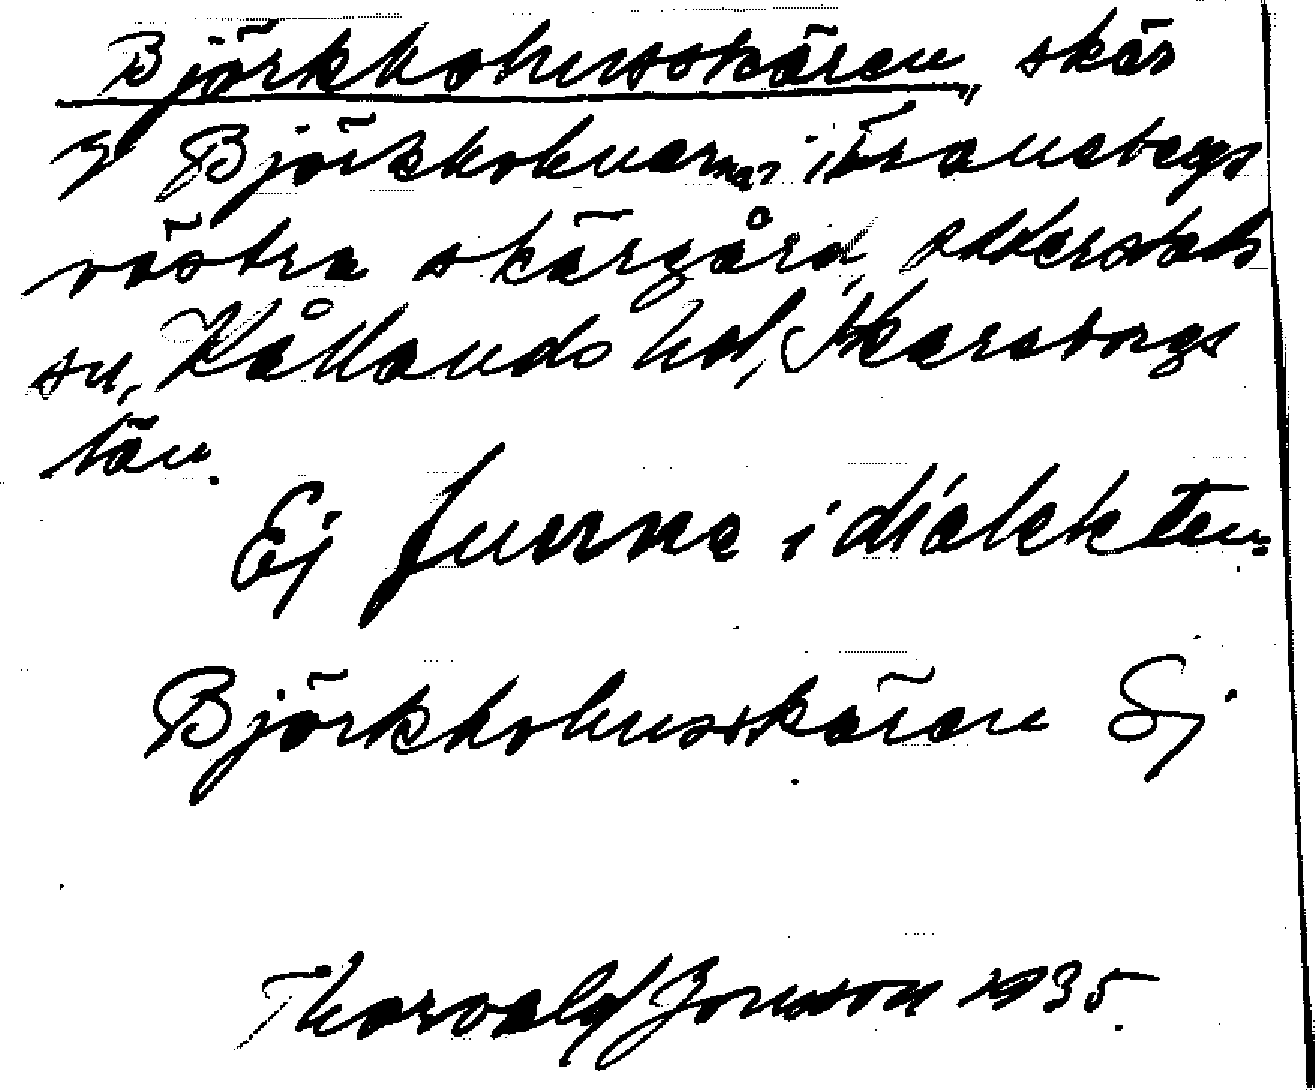 Björkholmsskären, skär
Björkholmarna, i
västra skärgård, Otterstads
sn, Kållands hd, Skaraborgs
län.
Ej funna i dialekten.
Björkholmsskären Ej
Thorvald Jonsson 1935.